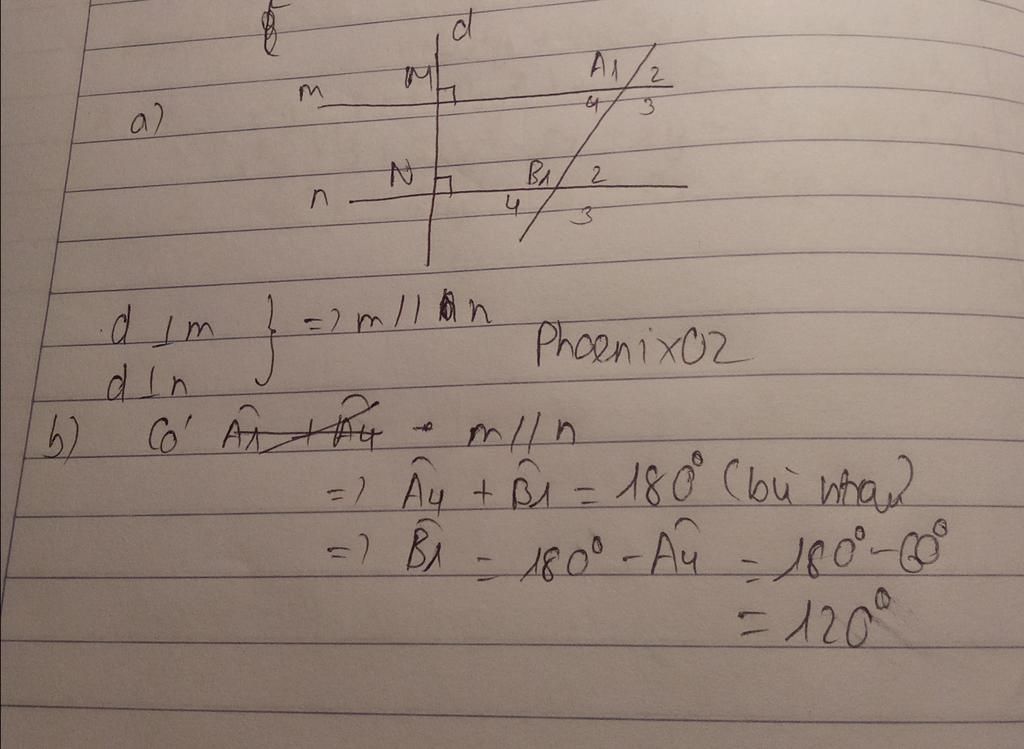 d
M A1 2
m 4 3
a)
N B1 2
n 4 3
d ⊥ m } => m // n
d ⊥ n
Phoenix02
b) Có m // n
=> Â4 + B̂1 = 180° (bù nhau)
=> B̂1 = 180° - Â4 = 180° - 60°
= 120°